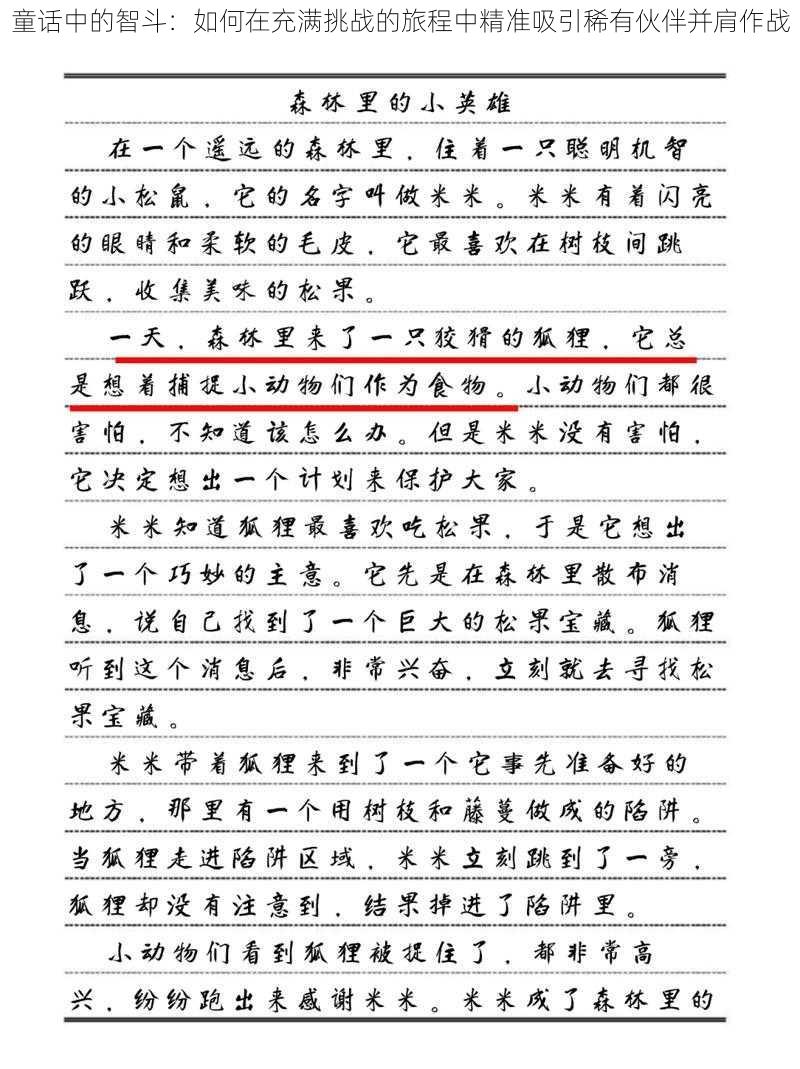 童话中的智斗：如何在充满挑战的旅程中精准吸引稀有伙伴并肩作战
森林里的小英雄
在一个遥远的森林里，住着一只聪明机智
的小松鼠，它的名字叫做米米。米米有着闪亮
的眼睛和柔软的毛皮，它最喜欢在树枝间跳
跃，收集美味的松果。
一天，森林里来了一只狡猾的狐狸，它总
是想着捕捉小动物们作为食物。小动物们都很
害怕，不知道该怎么办。但是米米没有害怕，
它决定想出一个计划来保护大家。
米米知道狐狸最喜欢吃松果，于是它想出
了一个巧妙的主意。它先是在森林里散布消
息，说自己找到了一个巨大的松果宝藏。狐狸
听到这个消息后，非常兴奋，立刻就去寻找松
果宝藏。
米米带着狐狸来到了一个它事先准备好的
地方，那里有一个用树枝和藤蔓做成的陷阱。
当狐狸走进陷阱区域，米米立刻跳到了一旁，
狐狸却没有注意到，结果掉进了陷阱里。
小动物们看到狐狸被捉住了，都非常高
兴，纷纷跑出来感谢米米。米米成了森林里的